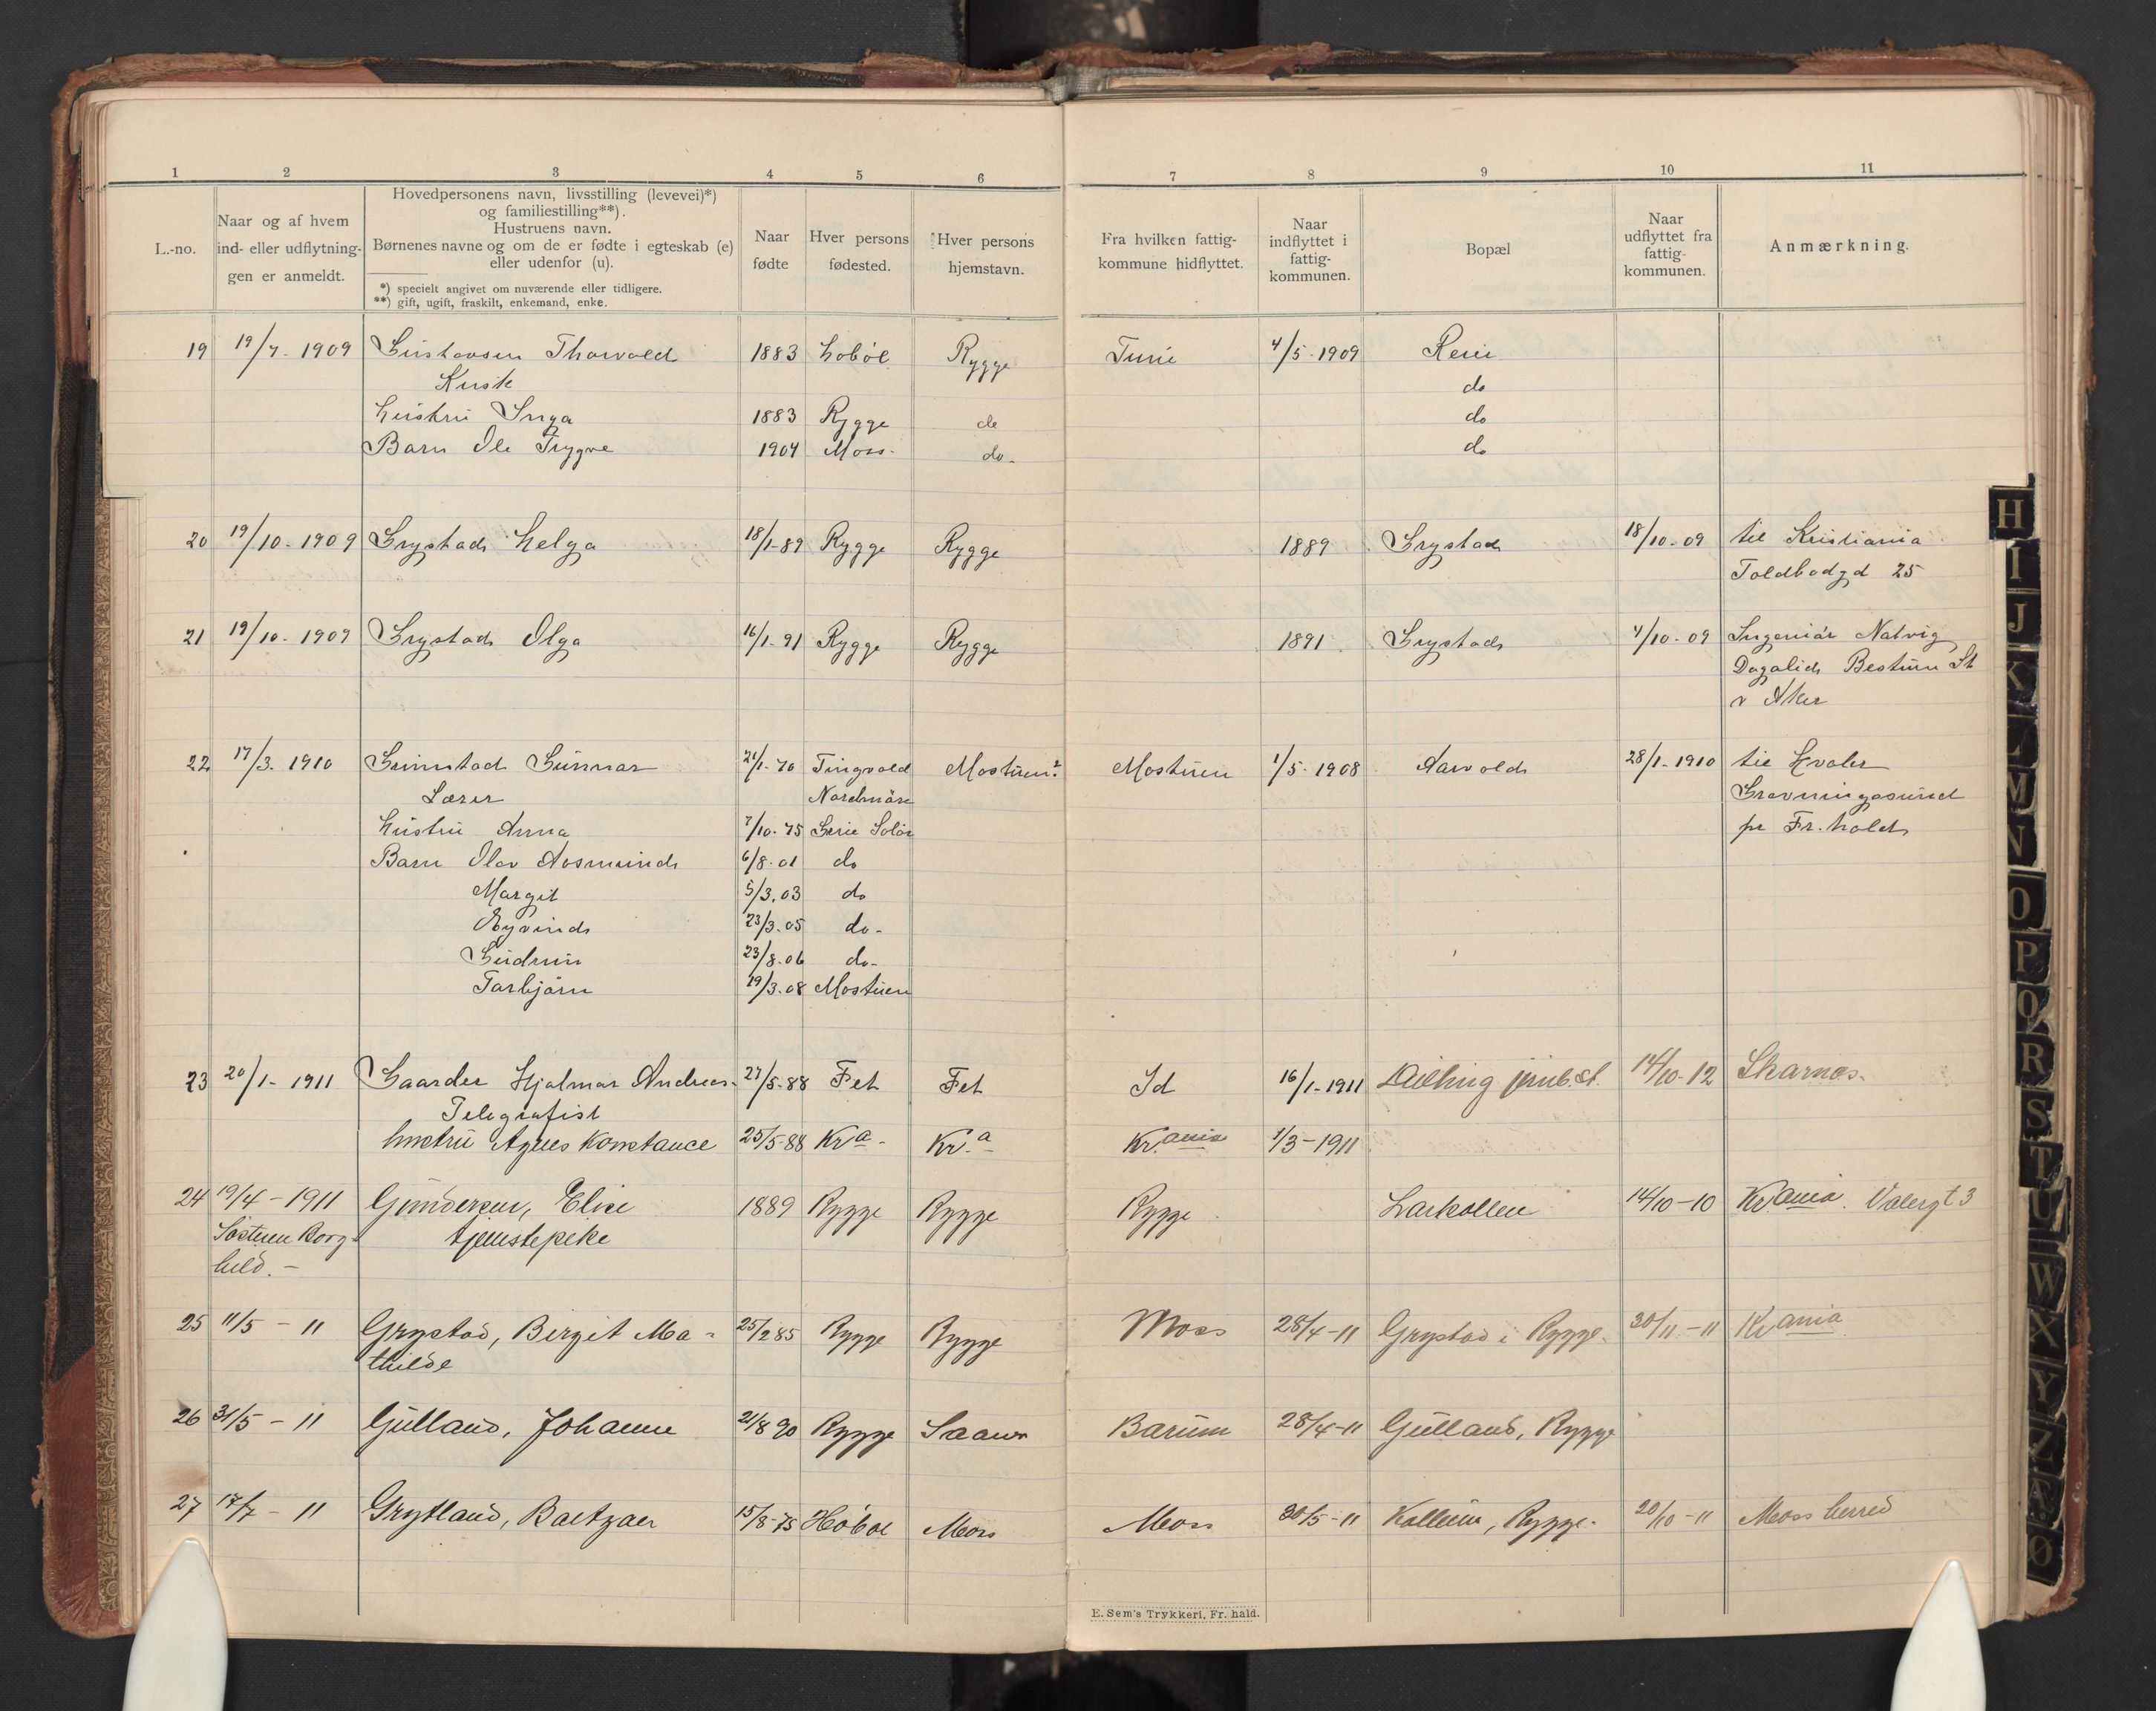 1 2 3 4 5 6 7 8 9 10 11
L.-no.
Naar og af hvem
ind- eller udflytnin-
gen er anmeldt.
Hovedpersonens navn, livsstilling (levevei)*)
og familiestilling**).
Hustruens navn.
Børnenes navne og om de er fødte i egteskab (e)
eller udenfor (u).
*) specielt angivet om nuværende eller tidligere.
**) gift, ugift, fraskilt, enkemand, enke.
Naar
fødte
Hver persons
fødested.
Hver persons
hjemstavn.
Fra hvilken fattig-
kommune hidflyttet.
Naar
indflyttet i
fattig-
kommunen.
Bopæl
Naar
udflyttet fra
fattig-
kommunen.
Anmærkning.
19 19/7-1909 Gustavsen Thorvald 1883 Hobøl Rygge Tune 4/5-1909 Reier
Kusk do
Hustru Inga 1883 Rygge do do
Barn Ole Trygve 1904 Moss- do- do
20 19/10-1909 Grystad Helga 18/1-89 Rygge Rygge 1889 Grystad 18/10-09 til Kristiania
Toldbodgd 25
21 19/10-1909 Grystad Olga 16/1-91 Rygge Rygge 1891 Grystad 4/10-09 Ingeniør Natvig
Dagalid Bestum St
v Aker
22 17/3-1910 Grimstad Gunnar 21/1-70 Tingvold Mostuen? Mostuen 1/5-1908 Aarvold 28/1-1910 til Hvaler
Lærer Nordmøre Gravningsund
Hustru Anna 7/10-75 Grue Solør pr Fr.hald
Barn Olav Aasmund 6/8-01 do
Margit 5/3.03 do
Øyvind 23/3.05 do-
Gudrun 23/8-06 do-
Torbjørn 19/3-08 Mostuen
23 20/1-1911 Gaarder Hjalmar Andreas- 27/8-88 Fet Fet Id 16/1-1911 Dilling jrnb.st. 14/10-12 Skarnes-
Telegrafist
hustru Agnes Konstance 25/5-88 Kra- Kr.a Kr.ania 1/3-1911
24 19/4-1911 Gundersen, Elise 1889 Rygge Rygge Rygge Larkollen 14/10-10 Kr.ania. Valergt 3
Søsteren Borg- tjenstepike
hild.-
25 11/5-11 Grystad, Birgit Ma- 25/2 85 Rygge Rygge Moss 28/4-11 Grystad i Rygge. 30/11-11 Krania
thilde
26 31/5-11 Gulland, Johanne 21/8 90 Rygge Saaner Bærum 28/4-11 Gulland, Rygge
27 17/7-11 Grytland, Baltzar 15/8-75 Høbøl Moss Moss 30/5-11 Kollum, Rygge- 20/10-11 Moss herred
E. Sem's Trykkeri, Fr. hald.
H
I
J
K
L
M
N
O
P
Q
R
S
T
U
W
X
Y
Z
Æ
Ø